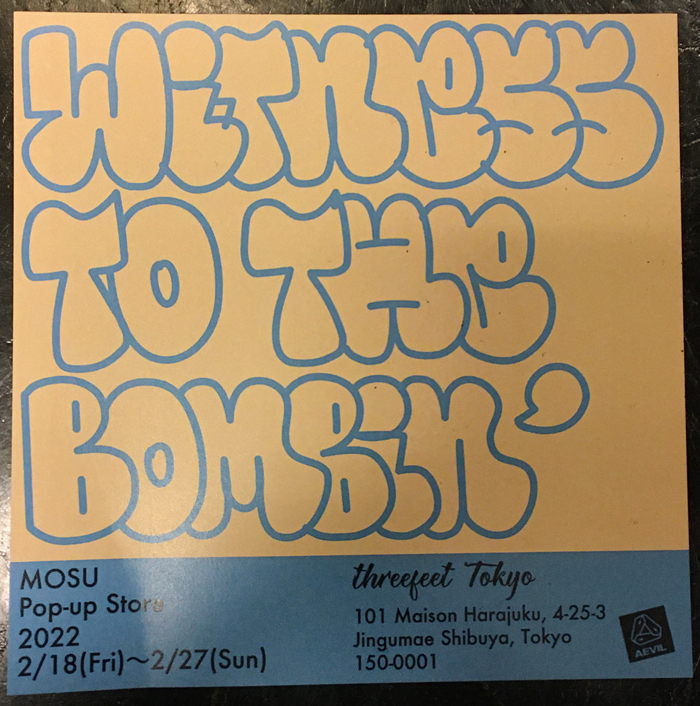 WiTNeSS
TO THe
BOMBiN'
MOSU
Pop-up Store
2022
2/18(Fri)～2/27(Sun)
threefeet Tokyo
101 Maison Harajuku, 4-25-3
Jingumae Shibuya, Tokyo
150-0001
AEVIL